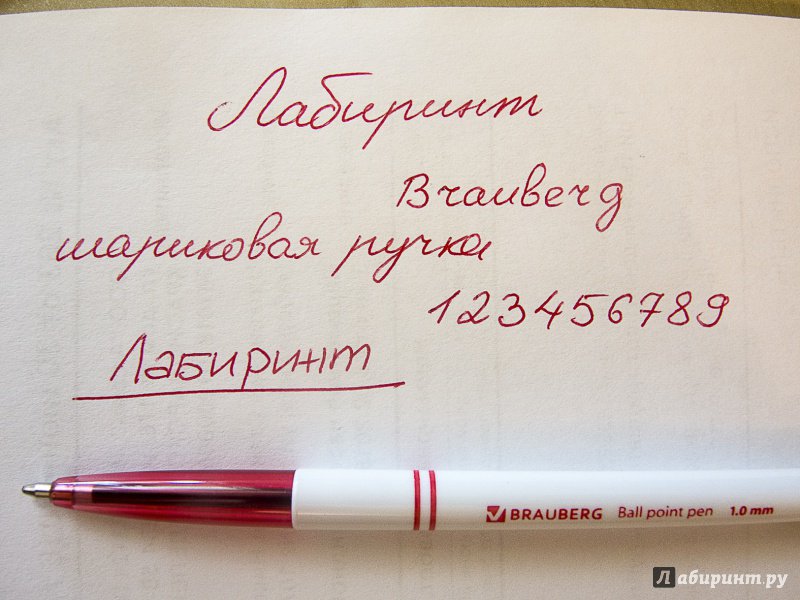 Лабиринт
Brauberg
шариковая ручка
123456789
Лабиринт
BRAUBERG Ball point pen 1.0 mm
Лабиринт.ру